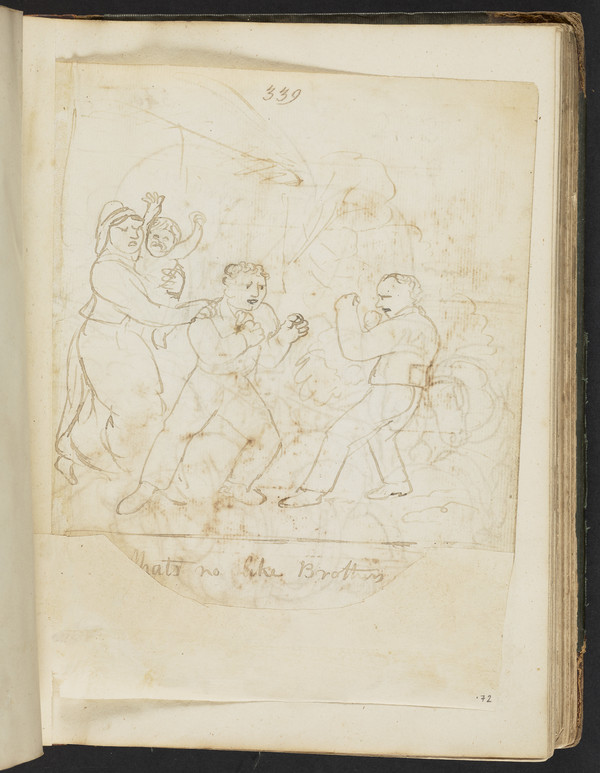 339
thats no like Brothers
.72